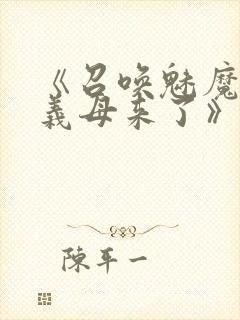 《召唤魅魔
義母来了》
陳平一